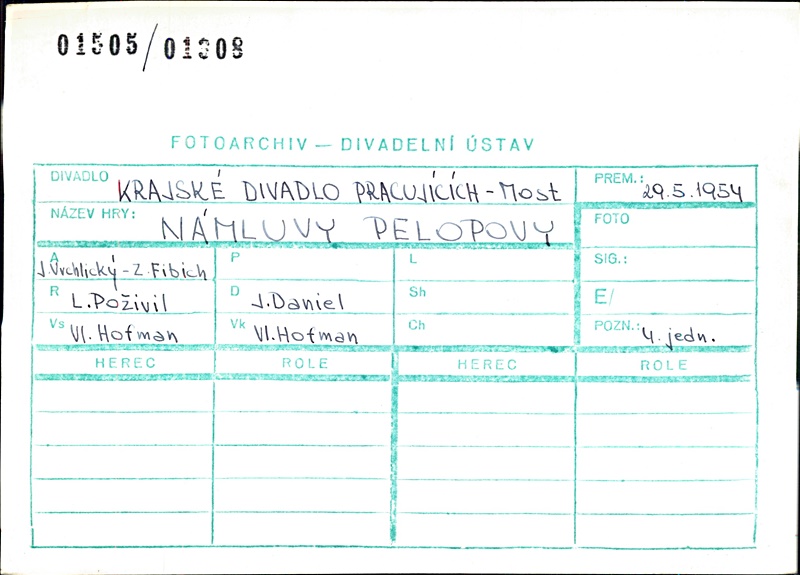 01505/01308
FOTOARCHIV — DIVADELNÍ ÚSTAV
DIVADLO KRAJSKÉ DIVADLO PRACUJÍCÍCH - Most PREM.: 29.5.1954
NÁZEV HRY: NÁMLUVY PELOPOVY FOTO
A J. Vrchlický - Z. Fibich P L SIG.:
R L. Poživil D J. Daniel Sh E/
Vs Vl. Hofman Vk Vl. Hofman Ch POZN.: 4. jedn.
HEREC ROLE HEREC ROLE